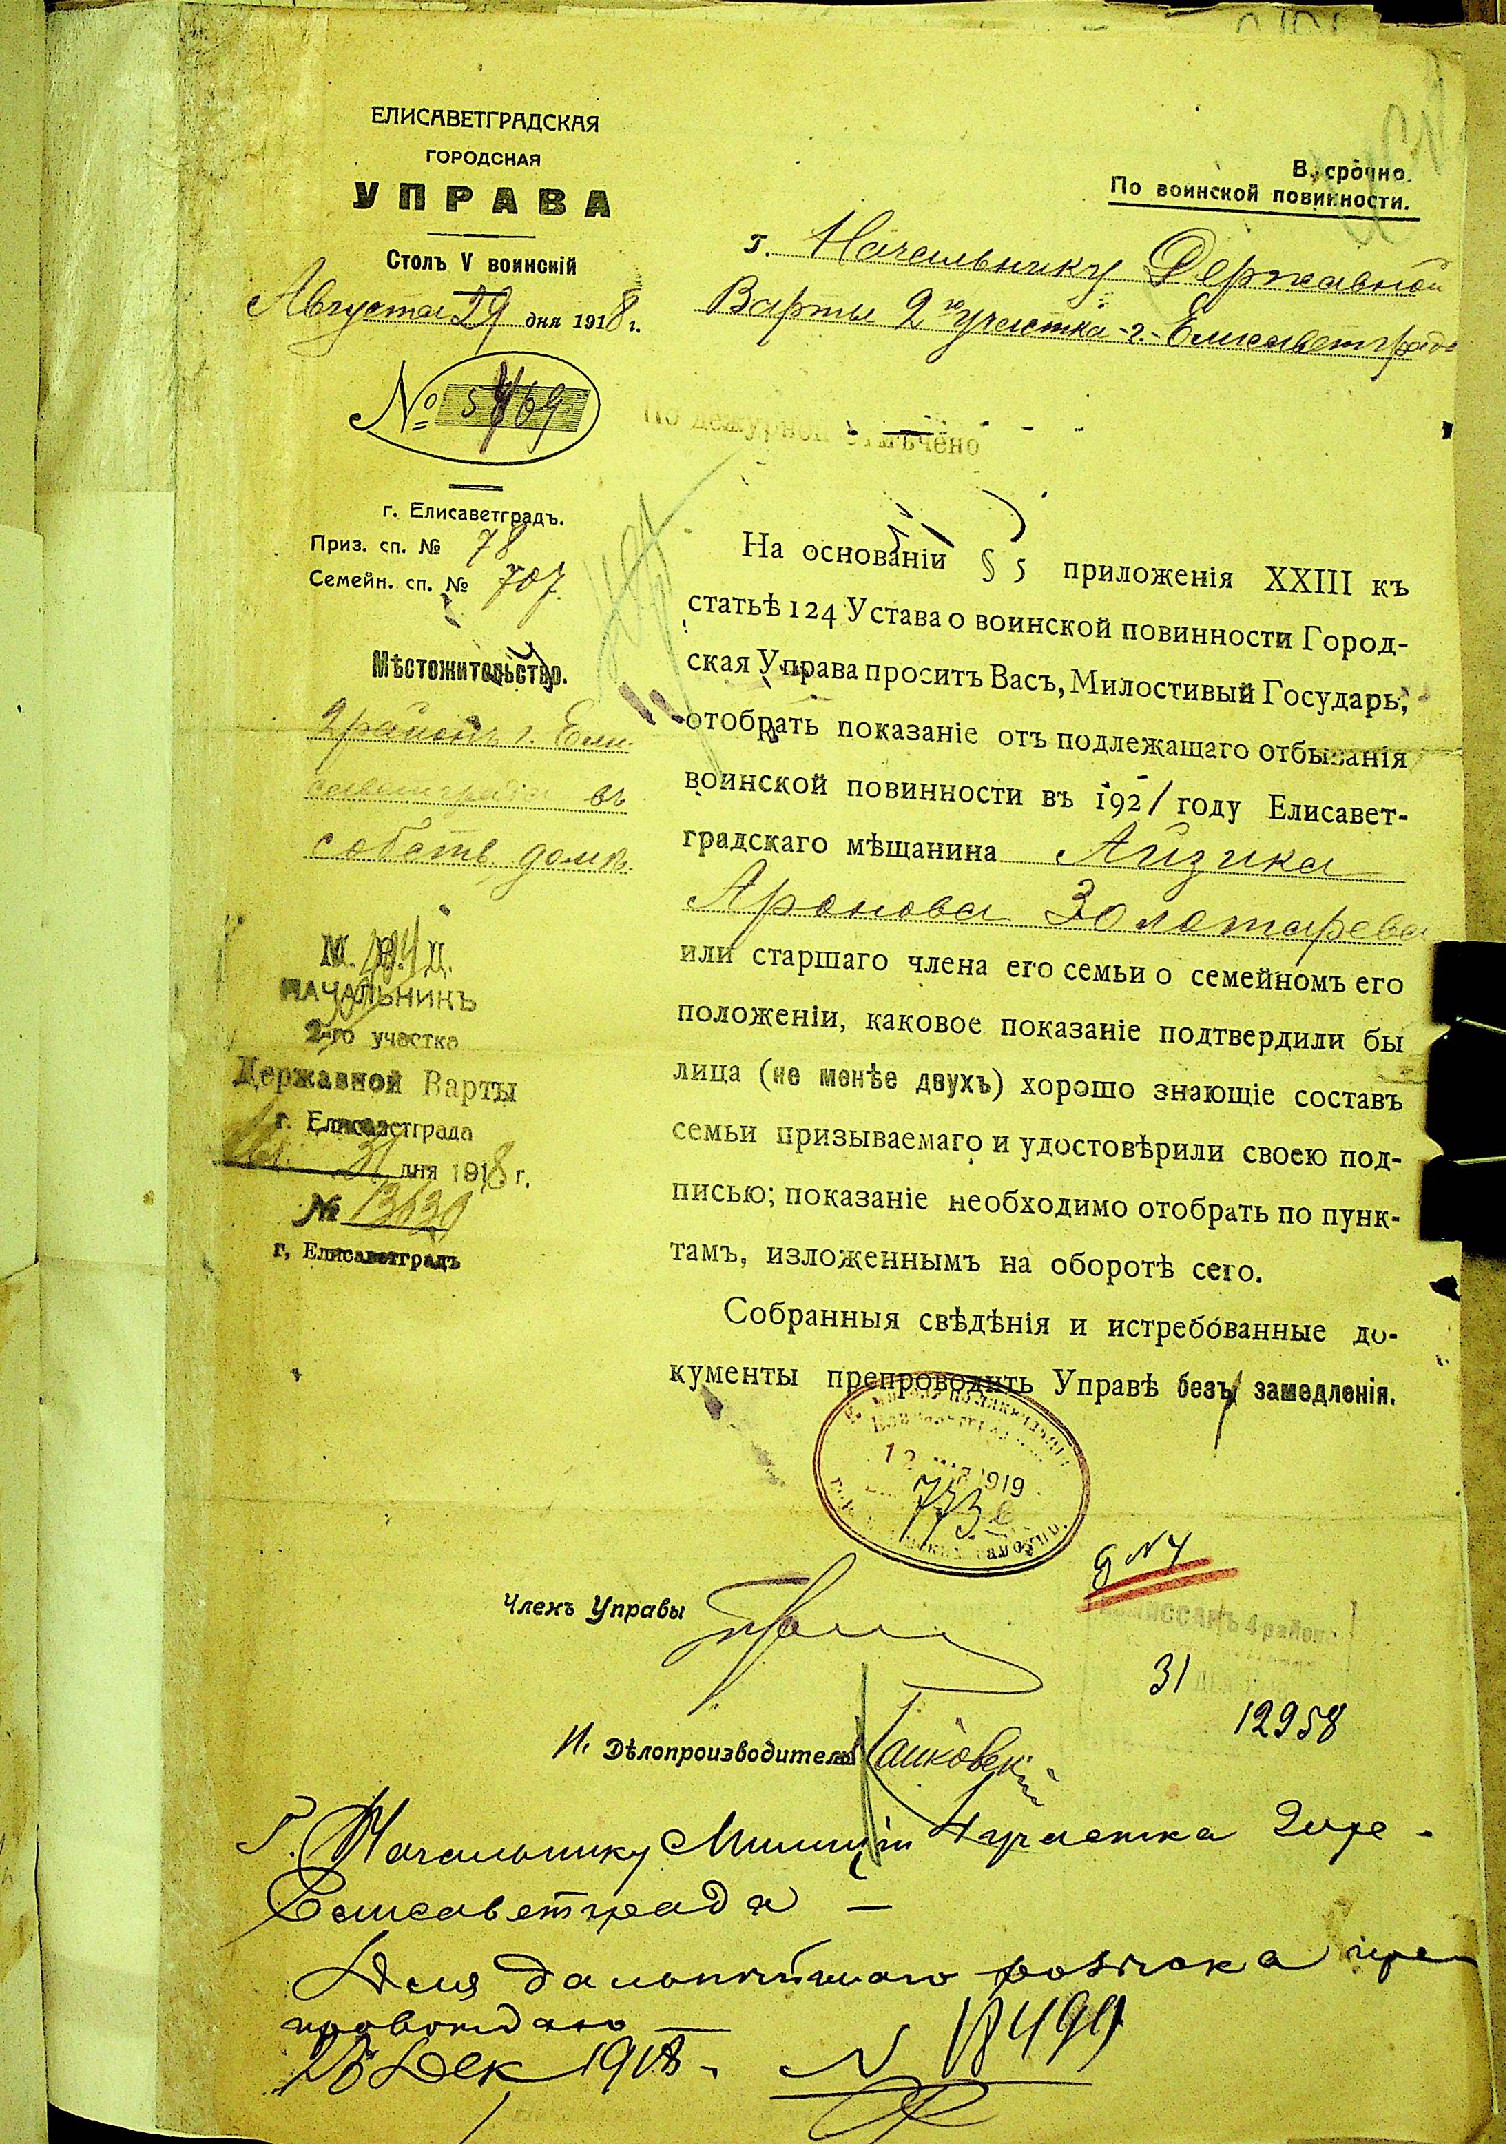 ЕЛИСАВЕТГРАДСКАЯ
ГОРОДСКАЯ
УПРАВА
Столъ V воинскій
Августа 29 дня 1918 г.
№ 5769
г. Елисаветградъ.
Приз. сп. № 78
Семейн. сп. № 707.
Мѣстожительство.
2 район г. Ели-
саветграда въ
собств. домѣ.
М. В. Д.
НАЧАЛЬНИКЪ
2-го участка
Державной Варты
г. Елисаветграда
31 дня 1918 г.
№ 13630
г. Елисаветградъ
В. срочно.
По воинской повинности.
г. Начальнику Державной
Варты 2 го участка г. Елисаветграда
По дежурной отмѣчено
На основаніи § 5 приложенія XXIII къ
статьѣ 124 Устава о воинской повинности Город-
ская Управа проситъ Васъ, Милостивый Государь,
отобрать показаніе отъ подлежащаго отбыванія
воинской повинности въ 1921 году Елисавет-
градскаго мѣщанина Айзика
Аронова Золотарева
или старшаго члена его семьи о семейномъ его
положеніи, каковое показаніе подтвердили бы
лица (не менѣе двухъ) хорошо знающіе составъ
семьи призываемаго и удостовѣрили своею под-
писью; показаніе необходимо отобрать по пунк-
тамъ, изложеннымъ на оборотѣ сего.
Собранныя свѣдѣнія и истребованные до-
кументы препроводить Управѣ безъ замедленія.
1919
773
Членъ Управы
б N 4
4 района
31
12958
И. Дѣлопроизводителя
Г. Начальнику Милиціи 4 участка Гор.
Елисаветграда —
Для дальнѣйшаго розыска пре
провождаю
28 Дек 1918. N 18499